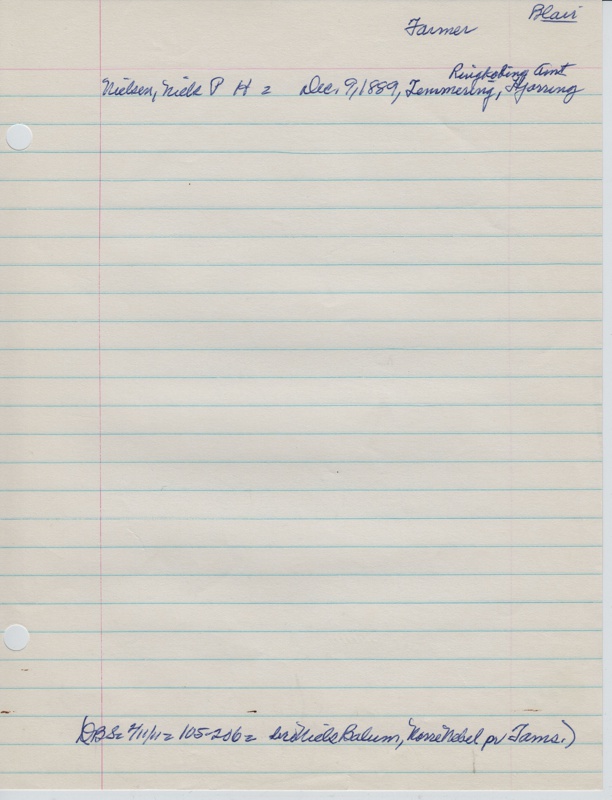 Blair
Farmer
Ringkobing Amt
Nielsen, Niels P H = Dec. 9, 1889, Temmering, Hjorring
(DBS= 2/11/11= 105-206= Niels Balum, Norre Nebel pr Tams.)